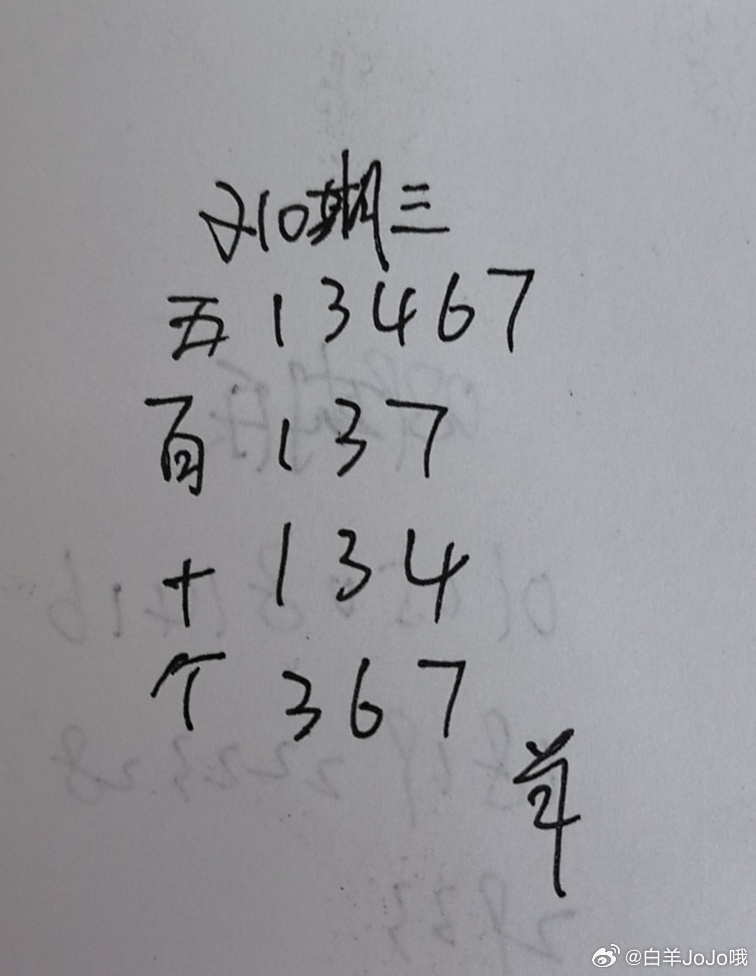 210期三
五 13467
百 137
十 134
个 367
羊
@白羊JoJo哦